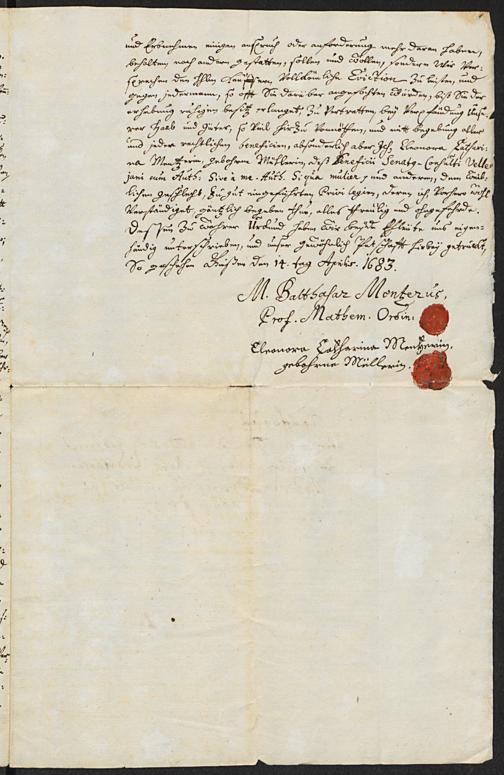 und Erbnehmen einigen anspruch oder anforderung mehr daran haben,
behalten, noch andern gestatten, sollen und wollen, sondern wir ver-
sprechen der vollkommene Eviction zu leisten, und
gegen jedermann, so offt Sie darüber angefochten würden, biß Sie der
ruhigen besitz erlanget, zu vertretten, bey verpfändung unse-
rer Haab und Güter, so viel hierzu vonnöthen, und mit begebung aller
und jeder rechtlichen beneficien, absonderlich aber Ich, Eleonora Cathari-
na Mentzerin, gebohrne Müllerin, deß Beneficii Senatus Consulti Velle-
jani cum Auth: Sive à me. Auth. Si qua mulier, und anderer, dem Weib-
lichen geschlecht, zu gut eingeführten Privilegien, deren ich vorhero wohl
verständiget, gäntzlich begeben thue, alles treulich und ohngefehrde.
Dessen zu wahrer Urkund haben wir beyde Eheleute uns eigen-
händig unterschrieben, und unser gewöhnlich Petschafft hierbey getruckt,
So geschehen den 14. tag Aprilis. 1683.
M. Balthasar Mentzerus,
Prof. Mathem. Ordin.
Eleonora Catharina Mentzerin,
gebohrne Müllerin.